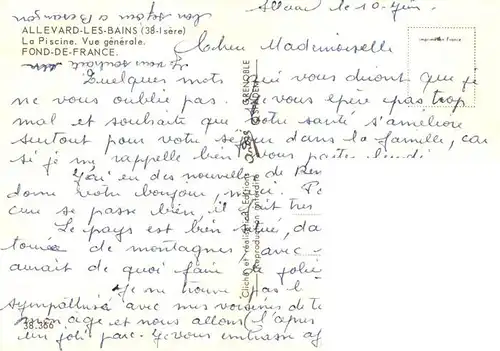 Allevard le 10 Juin.
bon séjour à Besançon
Je vous souhaite un
ALLEVARD-LES-BAINS (38-Isère)
La Piscine. Vue générale.
FOND-DE-FRANCE.
Imprimé en France
Chère Mademoiselle
Quelques mots qui vous diront que je
ne vous oublie pas. Je vous espère pas trop
mal et souhaite que votre santé s'améliore
surtout pour votre séjour dans la famille, car
si je me rappelle bien vous partez lundi
J'ai eu des nouvelles de
donné votre bonjour, merci.
cure se passe bien, il fait très
Le pays est bien situé, da
de montagnes avec
aurait de quoi faire la jolie
Je ne trouve pas l
sympathisé avec mes voisines de t
mon âge et nous allons l'après
un joli parc. Je vous embrasse af
38.366
Clichés et réalisation Editions
Reproduction interdite
GRENOBLE